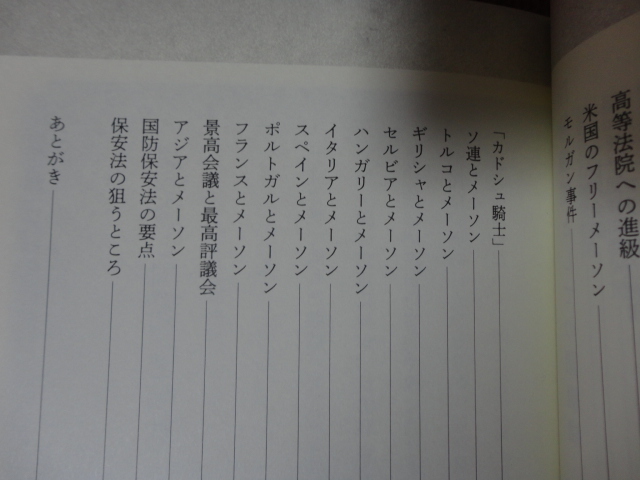 高等法院への進級
米国のフリーメーソン
モルガン事件
「カドシュ騎士」
ソ連とメーソン
トルコとメーソン
ギリシャとメーソン
セルビアとメーソン
ハンガリーとメーソン
イタリアとメーソン
スペインとメーソン
ポルトガルとメーソン
フランスとメーソン
景高会議と最高評議会
アジアとメーソン
国防保安法の要点
保安法の狙うところ
あとがき